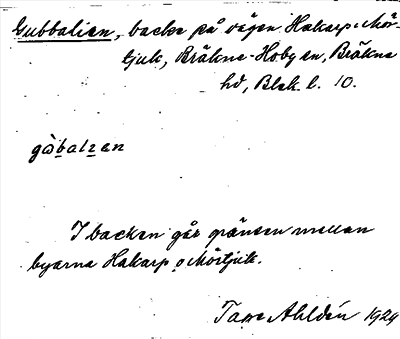 Gubbalien, backe på vägen Hakarp-Mör-
tjuk, Bräkne-Hoby sn, Bräkne
hd, Blek. l. 10.
gòbalien
I backen går gränsen mellan
byarna Hakarp o. Mörtjuk.
Tage Ahldén 1929